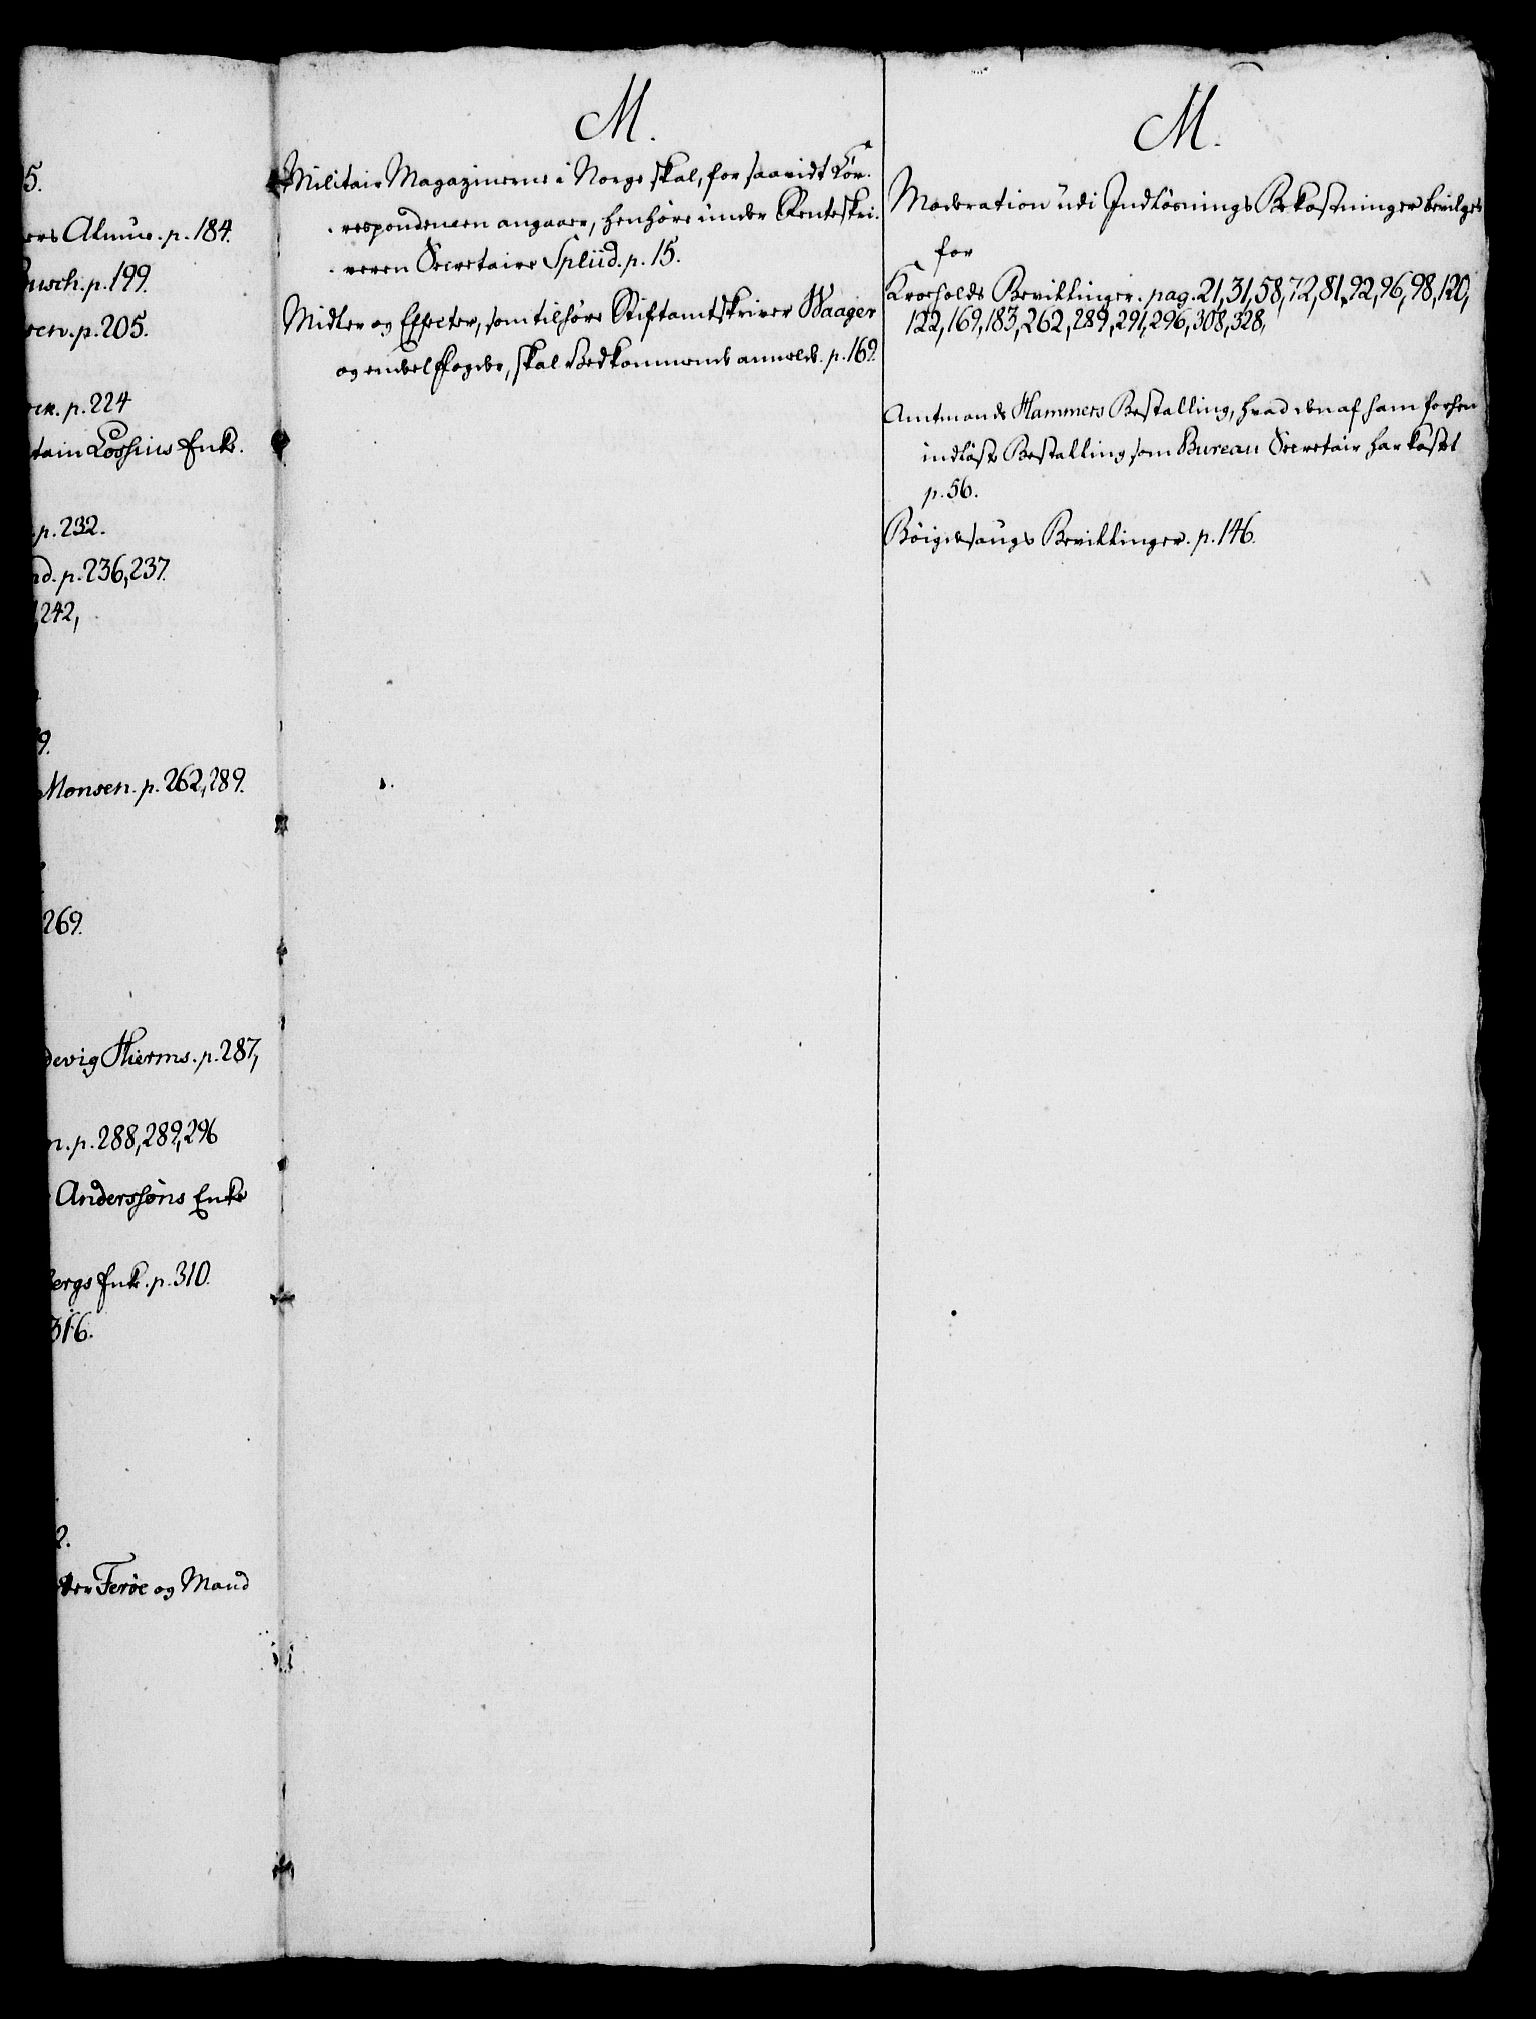 5.
ers Alnue. p. 184.
Busch. p. 199.
p. 205.
p. 224
tain Lossius Enke.
. p. 232.
nd. p. 236, 237.
, 242,
9.
Monsen. p. 262, 289.
269.
devig Hierms. p. 287,
n. p. 288, 289, 296
Anderssøns Enke
bergs Enke. p. 310.
316.
2.
Ferøe og Mand
M.
Militair Magazinerne i Norge skal, for saavidt Cor-
respondencen angaaer, henhøre under Renteskri-
veren Secretaire Spliid. p. 15.
Midler og Effecter, som tilhøre Stiftamtskriver Waager
og endeel Fogder, skal Vedkommende anmelde. p. 169.
M.
Moderation udi Indløsnings Bekostninger bevilges
for
Kroeholds Bevillinger. pag. 21, 31, 58, 72, 81, 92, 96, 98, 120,
122, 169, 183, 262, 289, 291, 296, 308, 328,
Amtmands Hammers Bestalling, hvad den af ham forhen
indløste Bestalling som Bureau Secretair har kostet
p. 56.
Bøigdesaugs Bevillinger. p. 146.